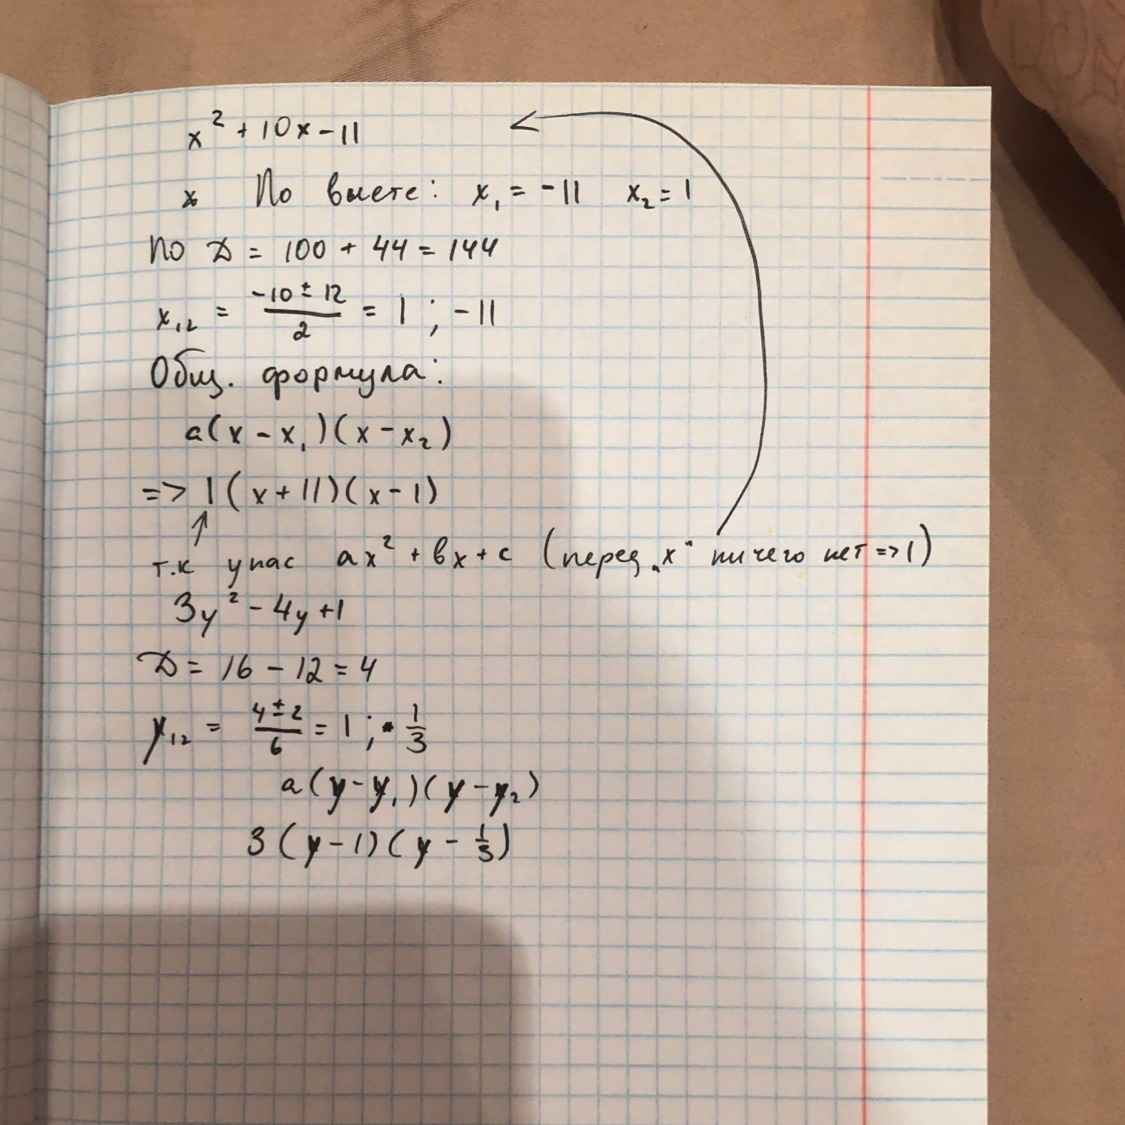 x² + 10x - 11
x По виете: x₁ = -11 x₂ = 1
по D = 100 + 44 = 144
x₁₂ = (-10 ± 12)/2 = 1 ; -11
Общ. формула:
a(x - x₁)(x - x₂)
=> 1(x + 11)(x - 1)
т.к у нас ax² + bx + c (перед „x" ничего нет => 1)
3y² - 4y + 1
D = 16 - 12 = 4
y₁₂ = (4 ± 2)/6 = 1 ; 1/3
a(y - y₁)(y - y₂)
3(y - 1)(y - 1/3)